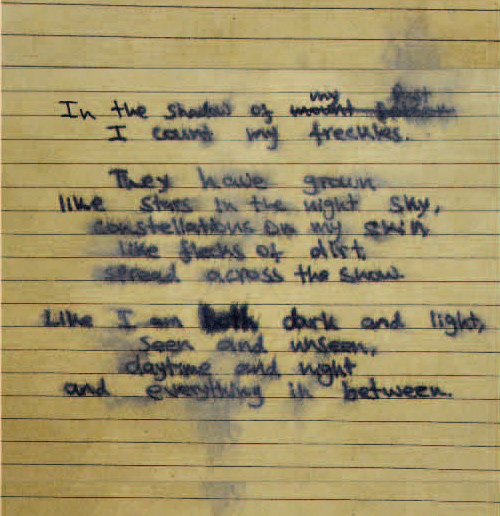 In the shadow of my past
I count my freckles.
They have grown
like stars in the night sky,
constellations on my skin,
like flecks of dirt,
spread across the snow.
Like I am both dark and light,
seen and unseen,
daytime and night
and everything in between.